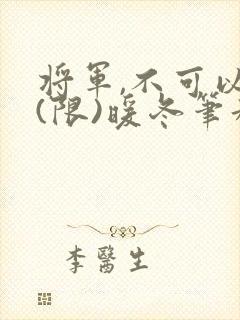 將軍,不可以
(限)暖冬筆
李醫生